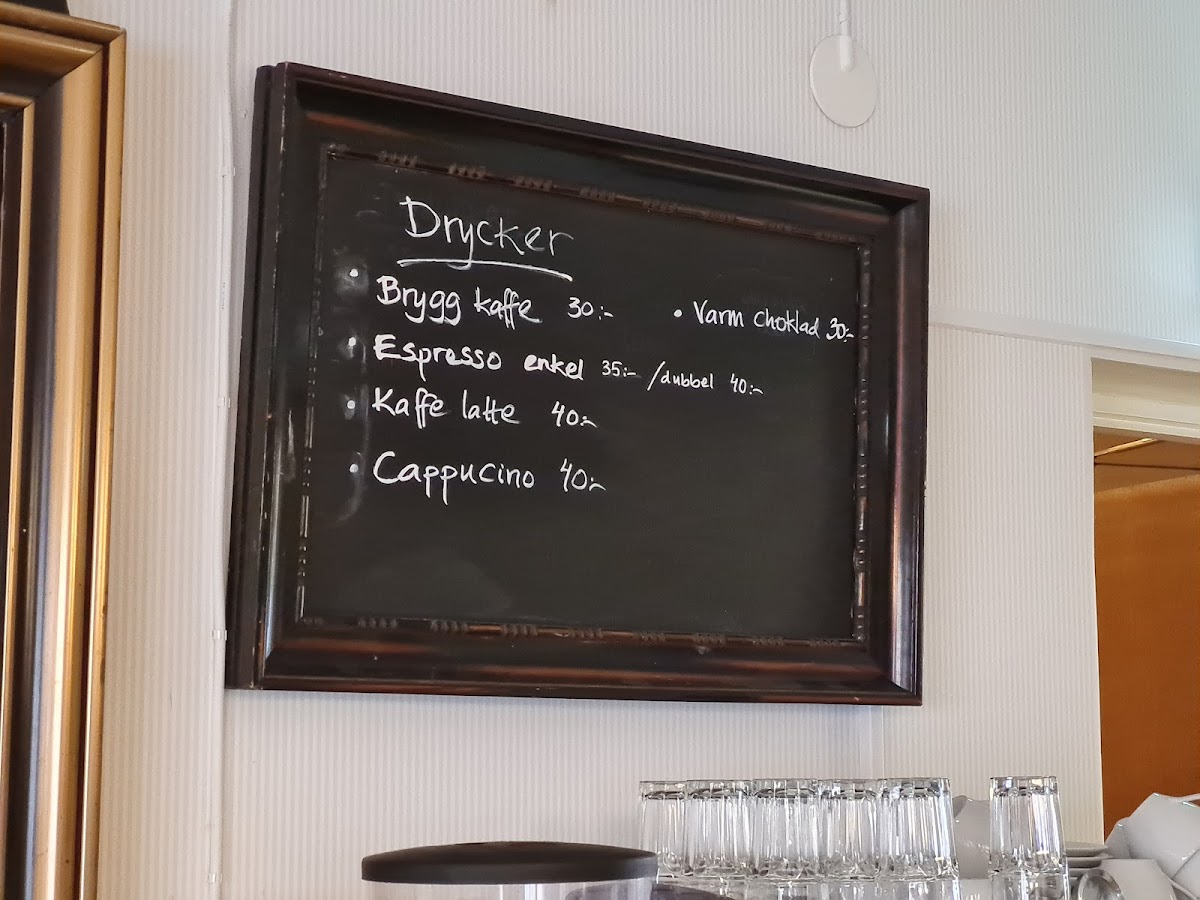 Drycker
• Brygg kaffe 30:-
• Varm choklad 30:-
• Espresso enkel 35:- / dubbel 40:-
• Kaffe latte 40:-
• Cappucino 40:-